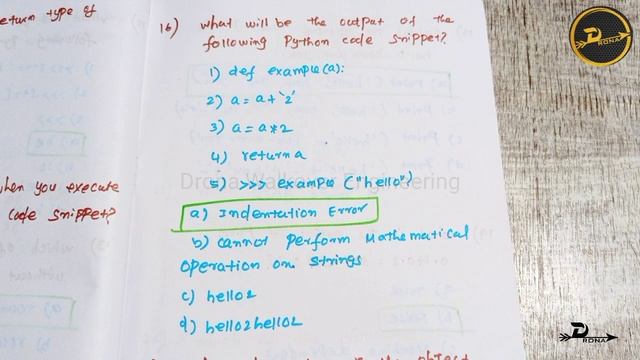 eturn type of
16) What will be the output of the
following Python code snippet?
1) def example(a):
2) a = a + '2'
3) a = a*2
4) return a
5) >>> example ("hello")
Drona Walkover Engineering
when you execute
code snippet?
a) Indentation Error
b) cannot perform Mathematical
operation on strings
c) hello2
d) hello2hello2
DRONA
DRONA